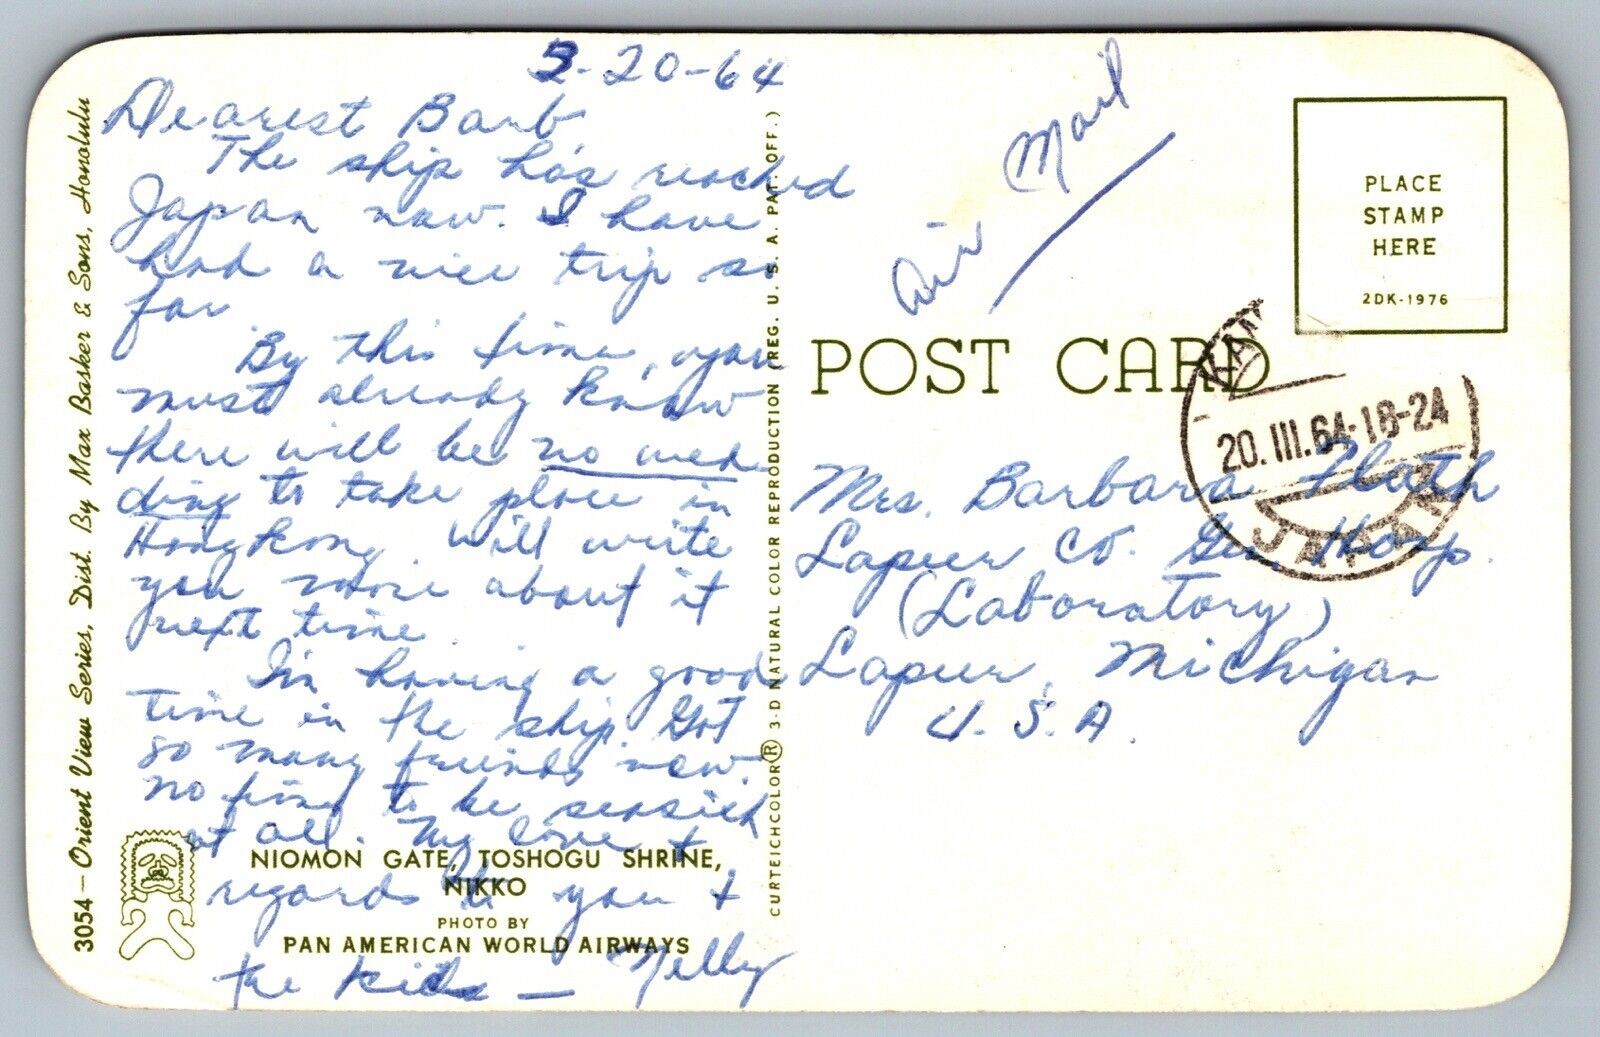 3-20-64
Dearest Barb
The ship has reached
Japan now. I have
had a nice trip so
far
By this time, you
must already know
there will be no wed-
ding to take place in
Hongkong. Will write
you more about it
next time.
I'm having a good
time in the ship. Got
so many friends now.
No time to be seasick
at all. My love &
regards to you &
the kids — Nelly
NIOMON GATE, TOSHOGU SHRINE,
NIKKO
PHOTO BY
PAN AMERICAN WORLD AIRWAYS
3054—Orient View Series, Dist. By Max Basker & Sons, Honolulu
CURTEICHCOLOR® 3-D NATURAL COLOR REPRODUCTION (REG. U. S. A. PAT. OFF.)
Air Mail
PLACE
STAMP
HERE
2DK-1976
POST CARD
20.III.64.18-24
JAPAN
Mrs. Barbara Plath
Lapeer Co. Gen. Hosp.
(Laboratory)
Lapeer, Michigan
U.S.A.